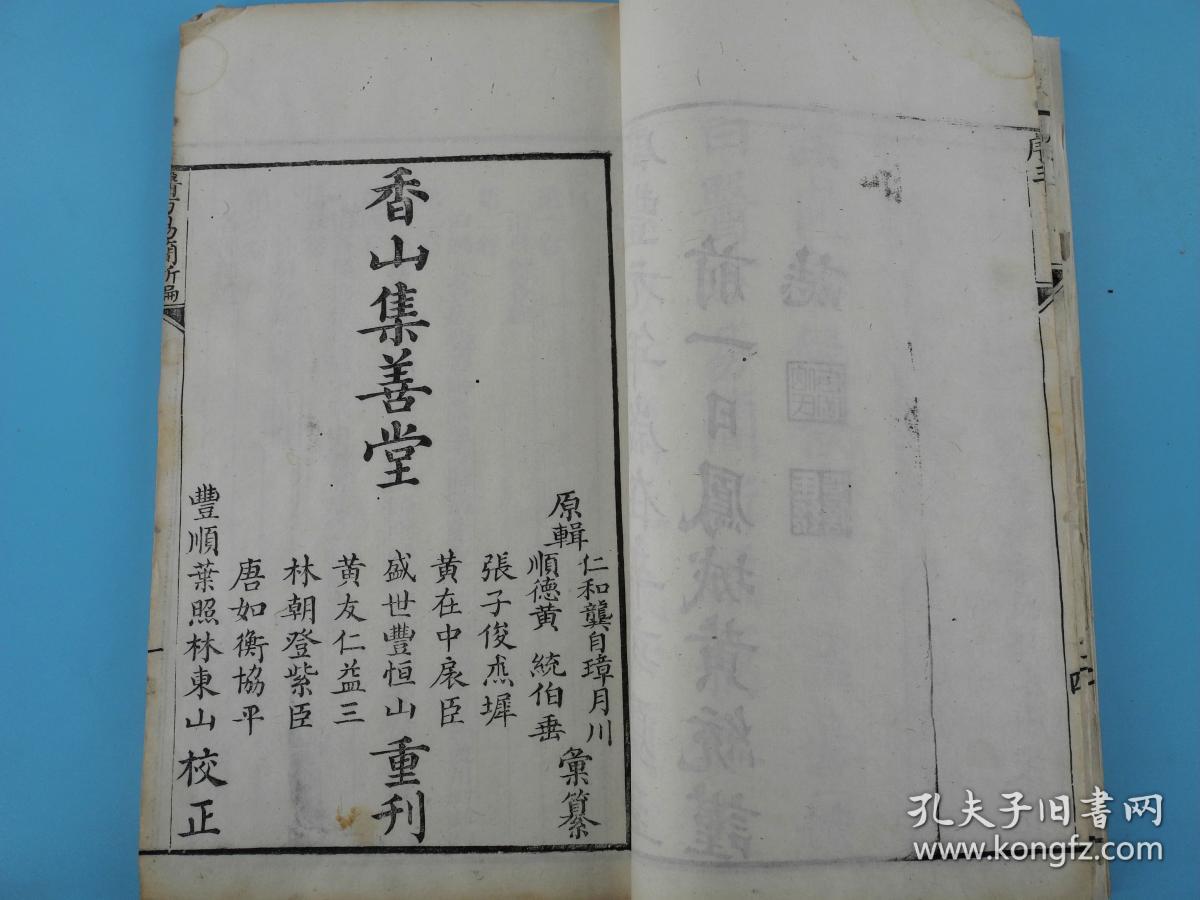 序三
原輯
仁和龔自璋月川
順德黃 統伯垂
彙纂
張子俊杰墀
黃在中扆臣
香山集善堂
盛世豐恒山
重刊
黃友仁益三
林朝登紫臣
唐如衡協平
豐順葉照林東山校正
醫方易簡新編
孔夫子旧书网
www.kongfz.com